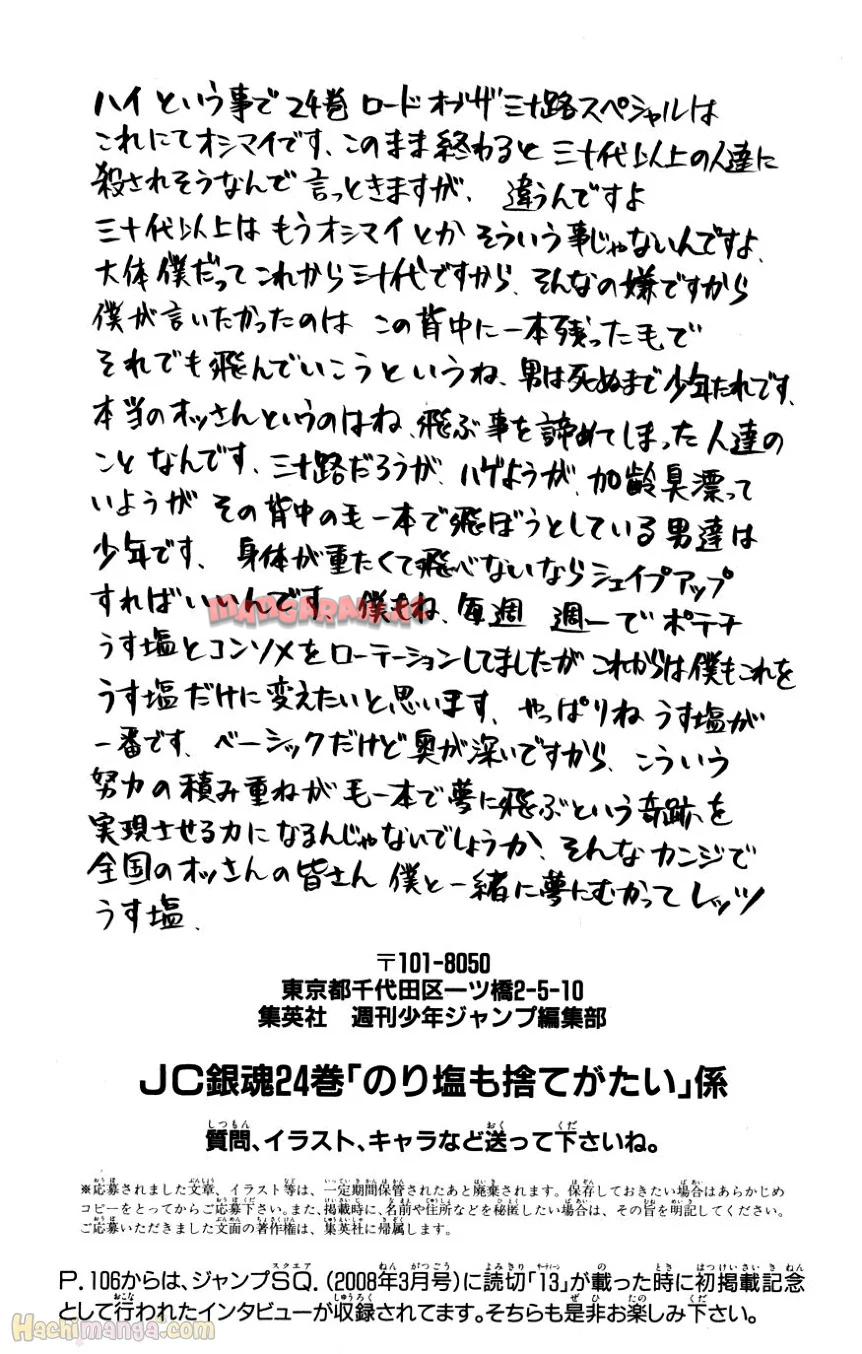 ハイという事で24巻ロードオブザ三十路スペシャルは
これにてオシマイです、このまま終わると三十代以上の人達に
殺されそうなんで言っときますが、違うんですよ
三十代以上はもうオシマイとかそういう事じゃないんですよ、
大体僕だってこれから三十代ですから、そんなの嫌ですから
僕が言いたかったのは この背中に一本残った毛で
それでも飛んでいこうというね、男は死ぬまで少年たれです、
本当のオッさんというのはね、飛ぶ事を諦めてしまった人達の
ことなんです、三十路だろうが、ハゲようが、加齢臭漂って
いようが その背中の毛一本で飛ぼうとしている男達は
少年です、身体が重たくて飛べないならシェイプアップ
すればいいんです、僕もね、毎週 週一でポテチ
うす塩とコンソメをローテーションしてましたがこれからは僕もこれを
うす塩だけに変えたいと思います、やっぱりねうす塩が
一番です、ベーシックだけど奥が深いですから、こういう
努力の積み重ねが毛一本で夢に飛ぶという奇跡を
実現させる力になるんじゃないでしょうか、そんなカンジで
全国のオッさんの皆さん 僕と一緒に夢にむかってレッツ
うす塩、
MANGARAW.AC
〒101-8050
東京都千代田区一ツ橋2-5-10
集英社 週刊少年ジャンプ編集部
JC銀魂24巻「のり塩も捨てがたい」係
質問、イラスト、キャラなど送って下さいね。
※応募されました文章、イラスト等は、一定期間保管されたあと廃棄されます。保存しておきたい場合はあらかじめ
コピーをとってからご応募下さい。また、掲載時に、名前や住所などを秘匿したい場合は、その旨を明記してください。
ご応募いただきました文面の著作権は、集英社に帰属します。
P.106からは、ジャンプSQ.（2008年3月号）に読切「13」が載った時に初掲載記念
として行われたインタビューが収録されてます。そちらも是非お楽しみ下さい。
Hachimanga.com